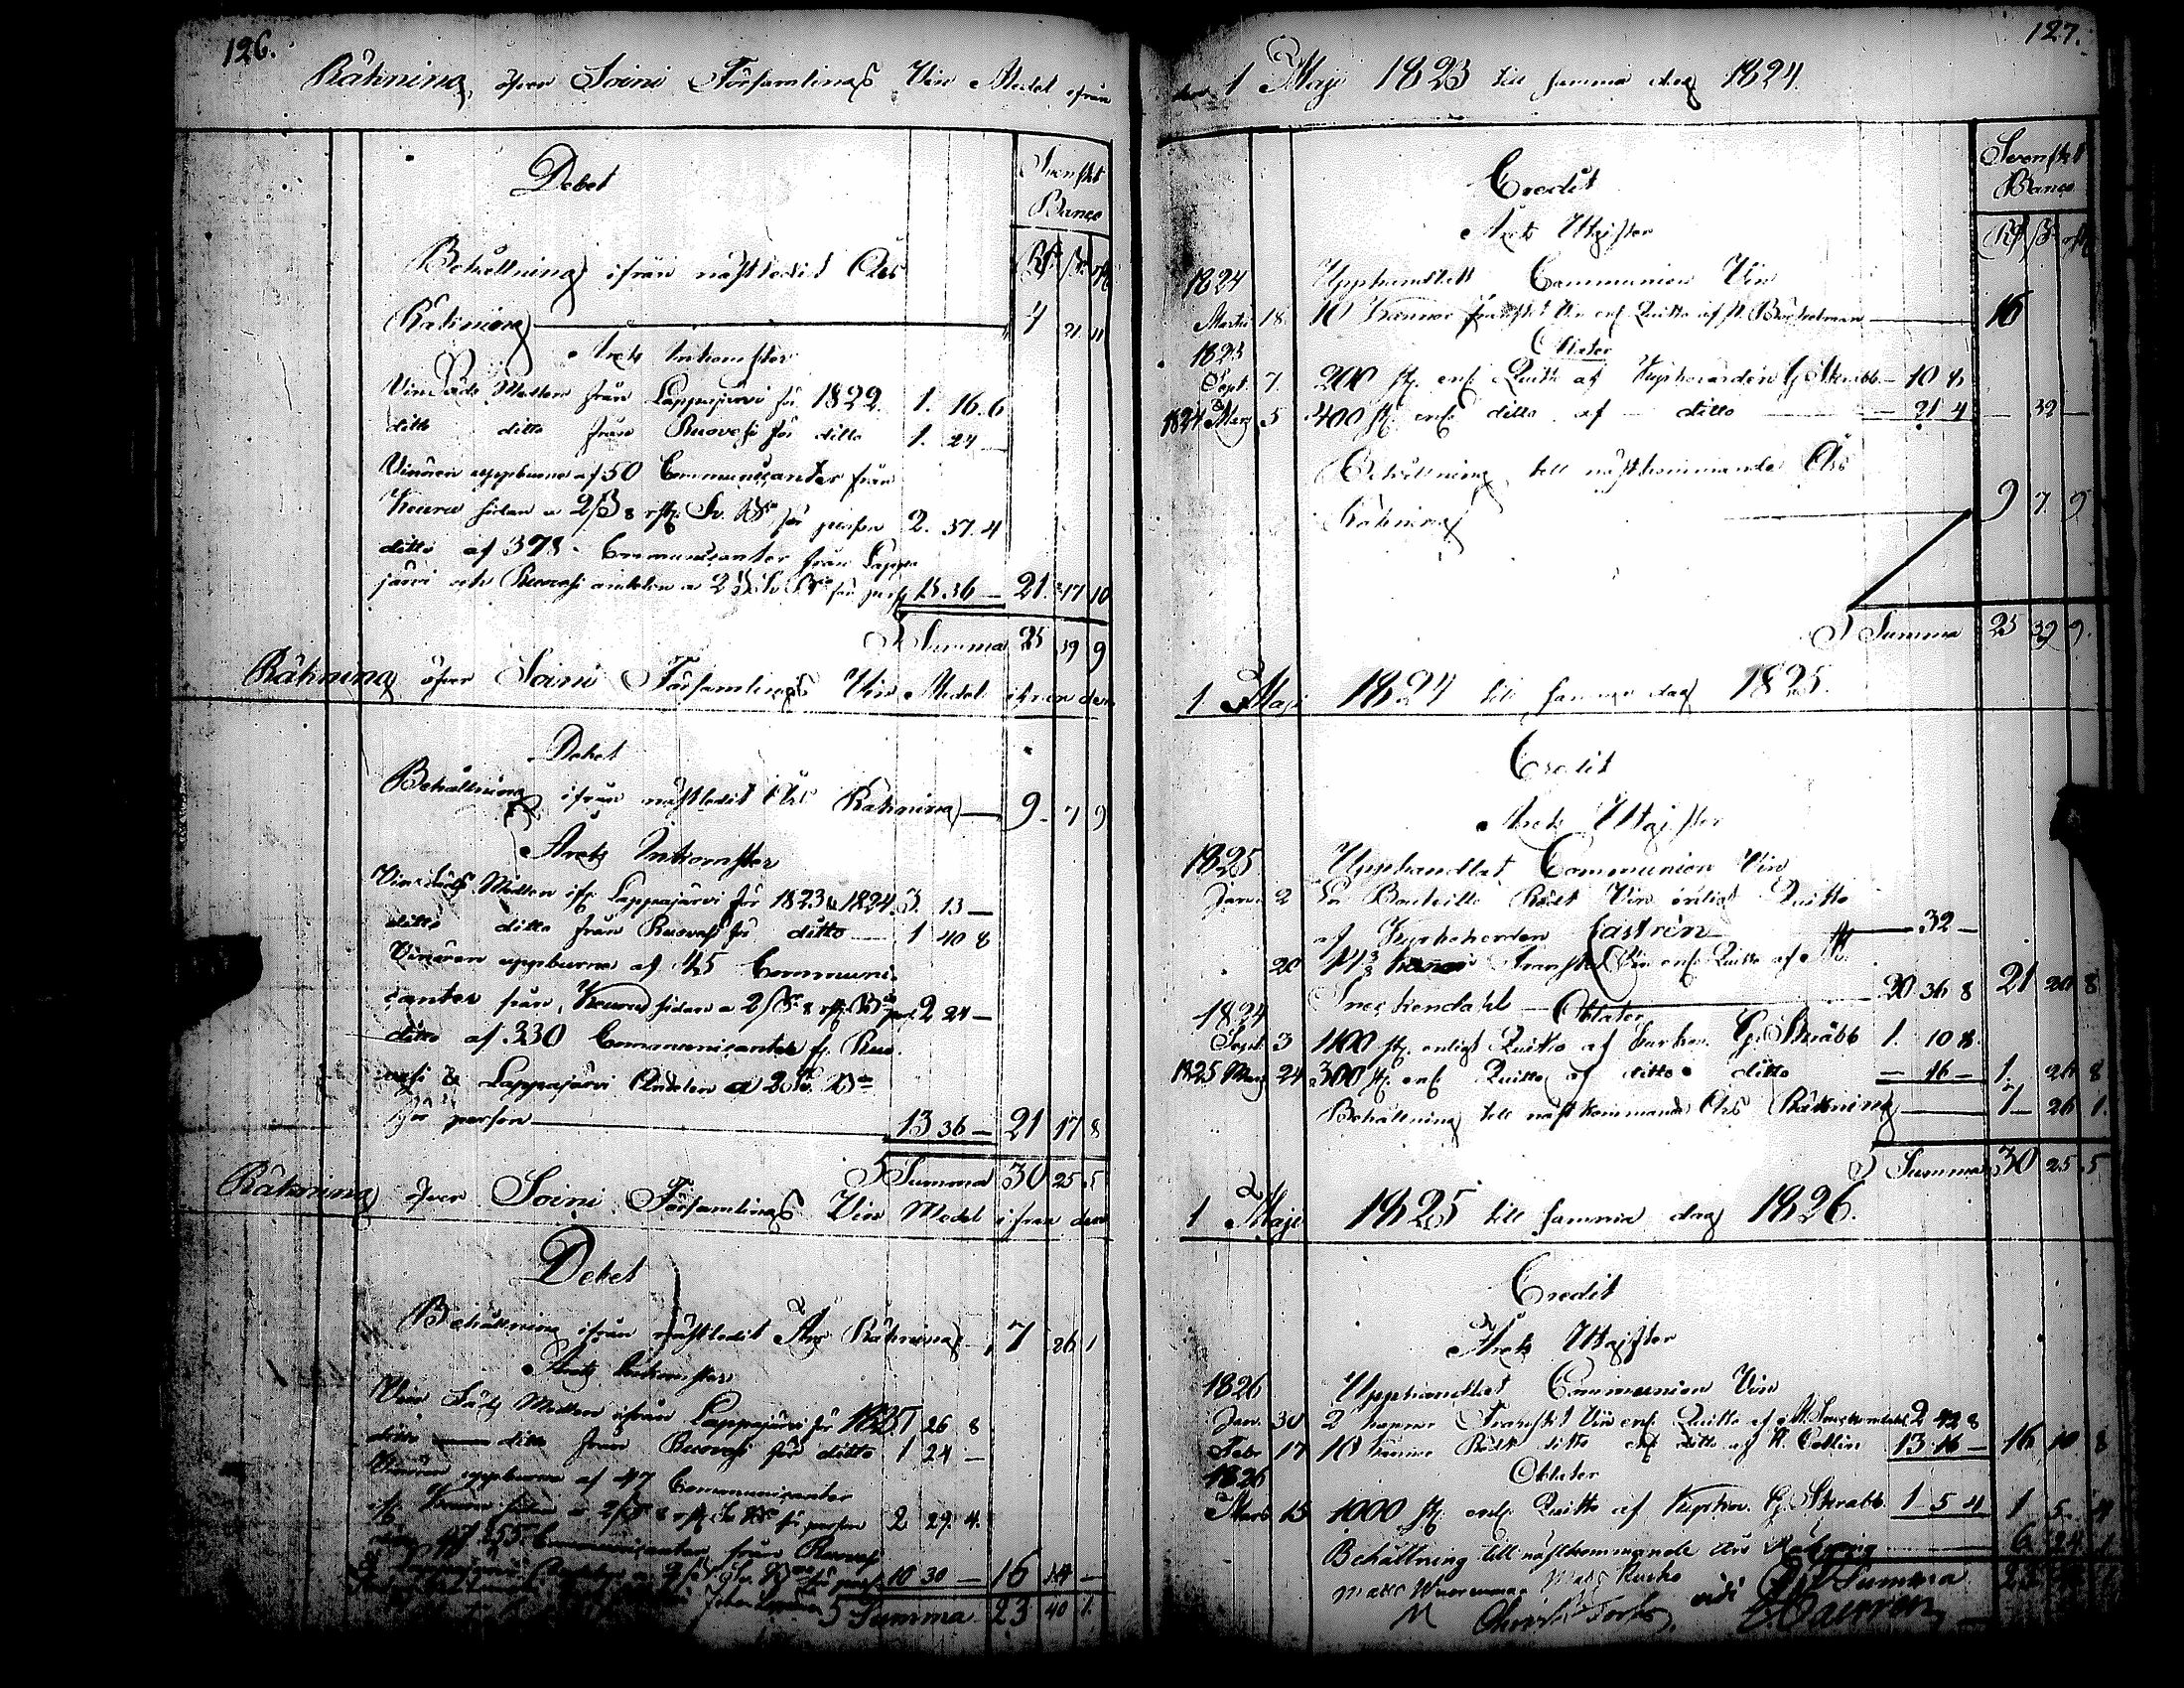 126.
Räkning öfver Soini Församlings Vin Medel ifrån
Debet
Svenskt
Banco
Rd ß rst
Behållning ifrån nästledit Års
Räkning 4 21 11
Årets Inkomster
Vin Säds Medlen från Lappajärvi för 1822 1. 16. 6
ditto ditto från Ruovesi för ditto 1. 24 —
Vinören uppburne af 50 Communicanter från
Keuru sidan a 2 ß 8 rst. Sv. Bco för person 2. 37. 4
ditto af 378 Communicanter från Lappa-
järvi och Ruovesi andelen a 2 ß Sv. Bco för pers. 15. 36 — 21. 17 10
Summa 25 39 9
Räkning öfver Soini Församlings Vin Medel ifrån den
Debet
Behållning ifrån nästledit Års Räkning — 9 7 9
Årets Inkomster
Vin Säds Medlen ifr. Lappajärvi för 1823 & 1824 3. 13 —
ditto ditto från Ruovesi för ditto — 1 40 8
Vinören uppburne af 45 Communi-
canter från Keuru sidan a 2 ß 8 rst. Bco pers. 2 24 —
ditto af 330 Communicanter fr. Ruo-
vesi & Lappajärvi Andelen a 2 ß Bco
för person — 13 36 — 21 17 8
Summa 30 25 5
Räkning öfver Soini Församlings Vin Medel ifrån den
Debet
Behållning ifrån nästledit Års Räkning — 7 26 1
Årets Inkomster
Vin Säds Medlen ifrån Lappajärvi för 1825 1 26 8
ditto ditto från Ruovesi för ditto 1 24 —
Vinören uppburne af 47 Communicanter
ifr. Keuru sidan a 2 ß 8 rst. Sv. Bco för person 2 29. 4.
Communicanter från Ruovesi
10 30 — 16 14 —
Summa 23 40 1.
127.
den 1 Maji 1823 till samma dag 1824.
Credit
Svenskt
Banco
Rd ß rst
Årets Utgifter
1824 Upphandlat Communion Vin
Martii 18. 10 Kannor franskt Vin enl. Quitto af — 16
1823 Oblater
Sept. 7. 200 st. enl. Quitto af Kyrkovärden G. Skrabb — 10 8
1824 Marz 5 400 st. enl. ditto af ditto — 21 4 — 32 —
Behållning till nästkommande Års
Räkning — 9 7. 9.
Summa 25 39 9.
1 Maji 1824 till samma dag 1825.
Credit
Årets Utgifter
1825 Upphandlat Communion Vin
Janu. 2 En Bouteille Rödt Vin enligt Quitto
af Kyrkoherden Castrén — 32 —
20 Franskt Vin enl. Quitto af
Sneckendahl — 20 36 8 21 20 8
1824 Oblater
Sept. 3 1100 st. enligt Quitto af Kyrkov. G. Skrabb 1. 10 8.
1825 Marz 24 300 st. enl. Quitto af ditto ditto — 16 — 1. 26 8
Behållning till nästkommande Års Räkning — 7 26 1.
Summa 30 25 5
1 Maji 1825 till samma dag 1826.
Credit
Årets Utgifter
1826 Upphandlat Communion Vin
Jan. 30 2 kannor Franskt Vin enl. Quitto af H. Sneckendahl 2 42 8
Febr. 17 10 kannor Rödt ditto enl. ditto af H. Collin 13 16 — 16 10 8
1826 Oblater
Mars 15 1000 st. enl. Quitto af Kyrkov. G. Skrabb 1 5 4 1 5. 4
Behållning till nästkommande Års Räkning — 6. 24 1
Matts Matts Kusko vidi Summa 23